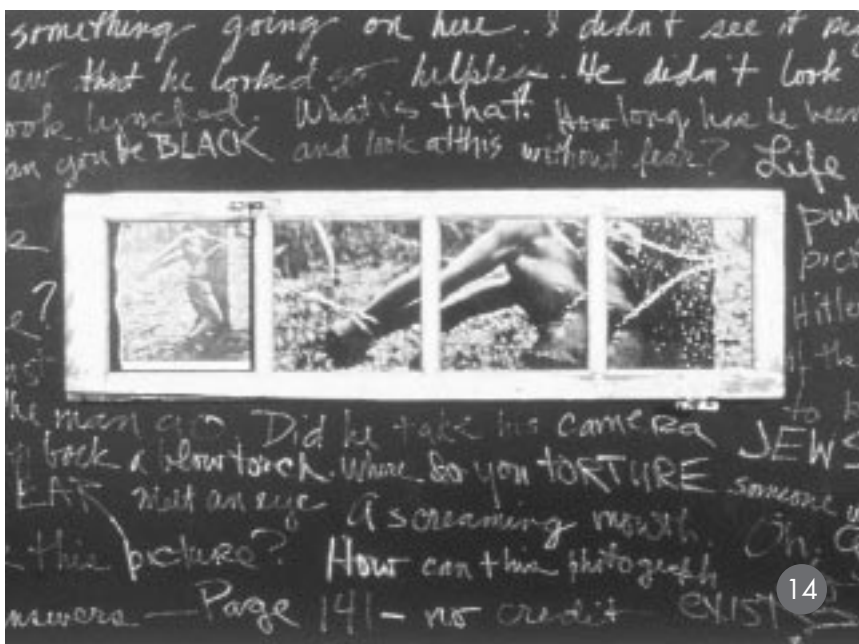 something going on here. I didn't see it
that he looked so helpless. He didn't look
look lynched. What is that? How long has he been
can you be BLACK and look at this without fear? Life
pict
Hitler
?
the
the man go Did he take his camera to
JEWS
back a blowtorch. Where do you TORTURE someone
EAR melt an eye A screaming mouth. Oh,
this picture? How can this photograph
answers — Page 141 — no credit EXIST
14